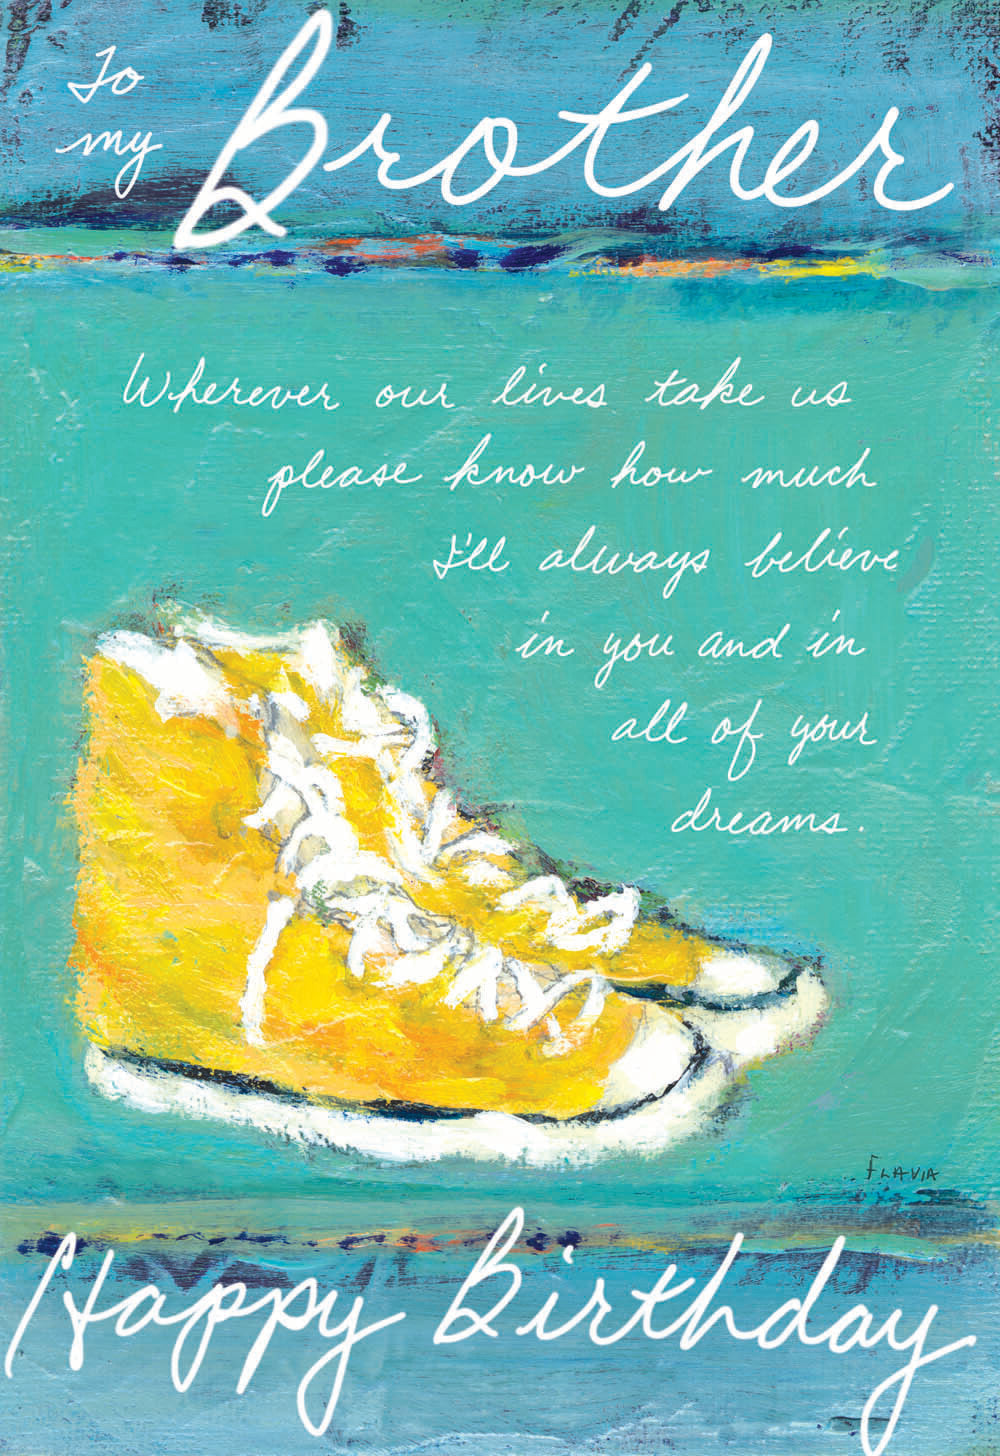 To
my
Brother
Wherever our lives take us
please know how much
I'll always believe
in you and in
all of your
dreams.
FLAVIA
Happy Birthday